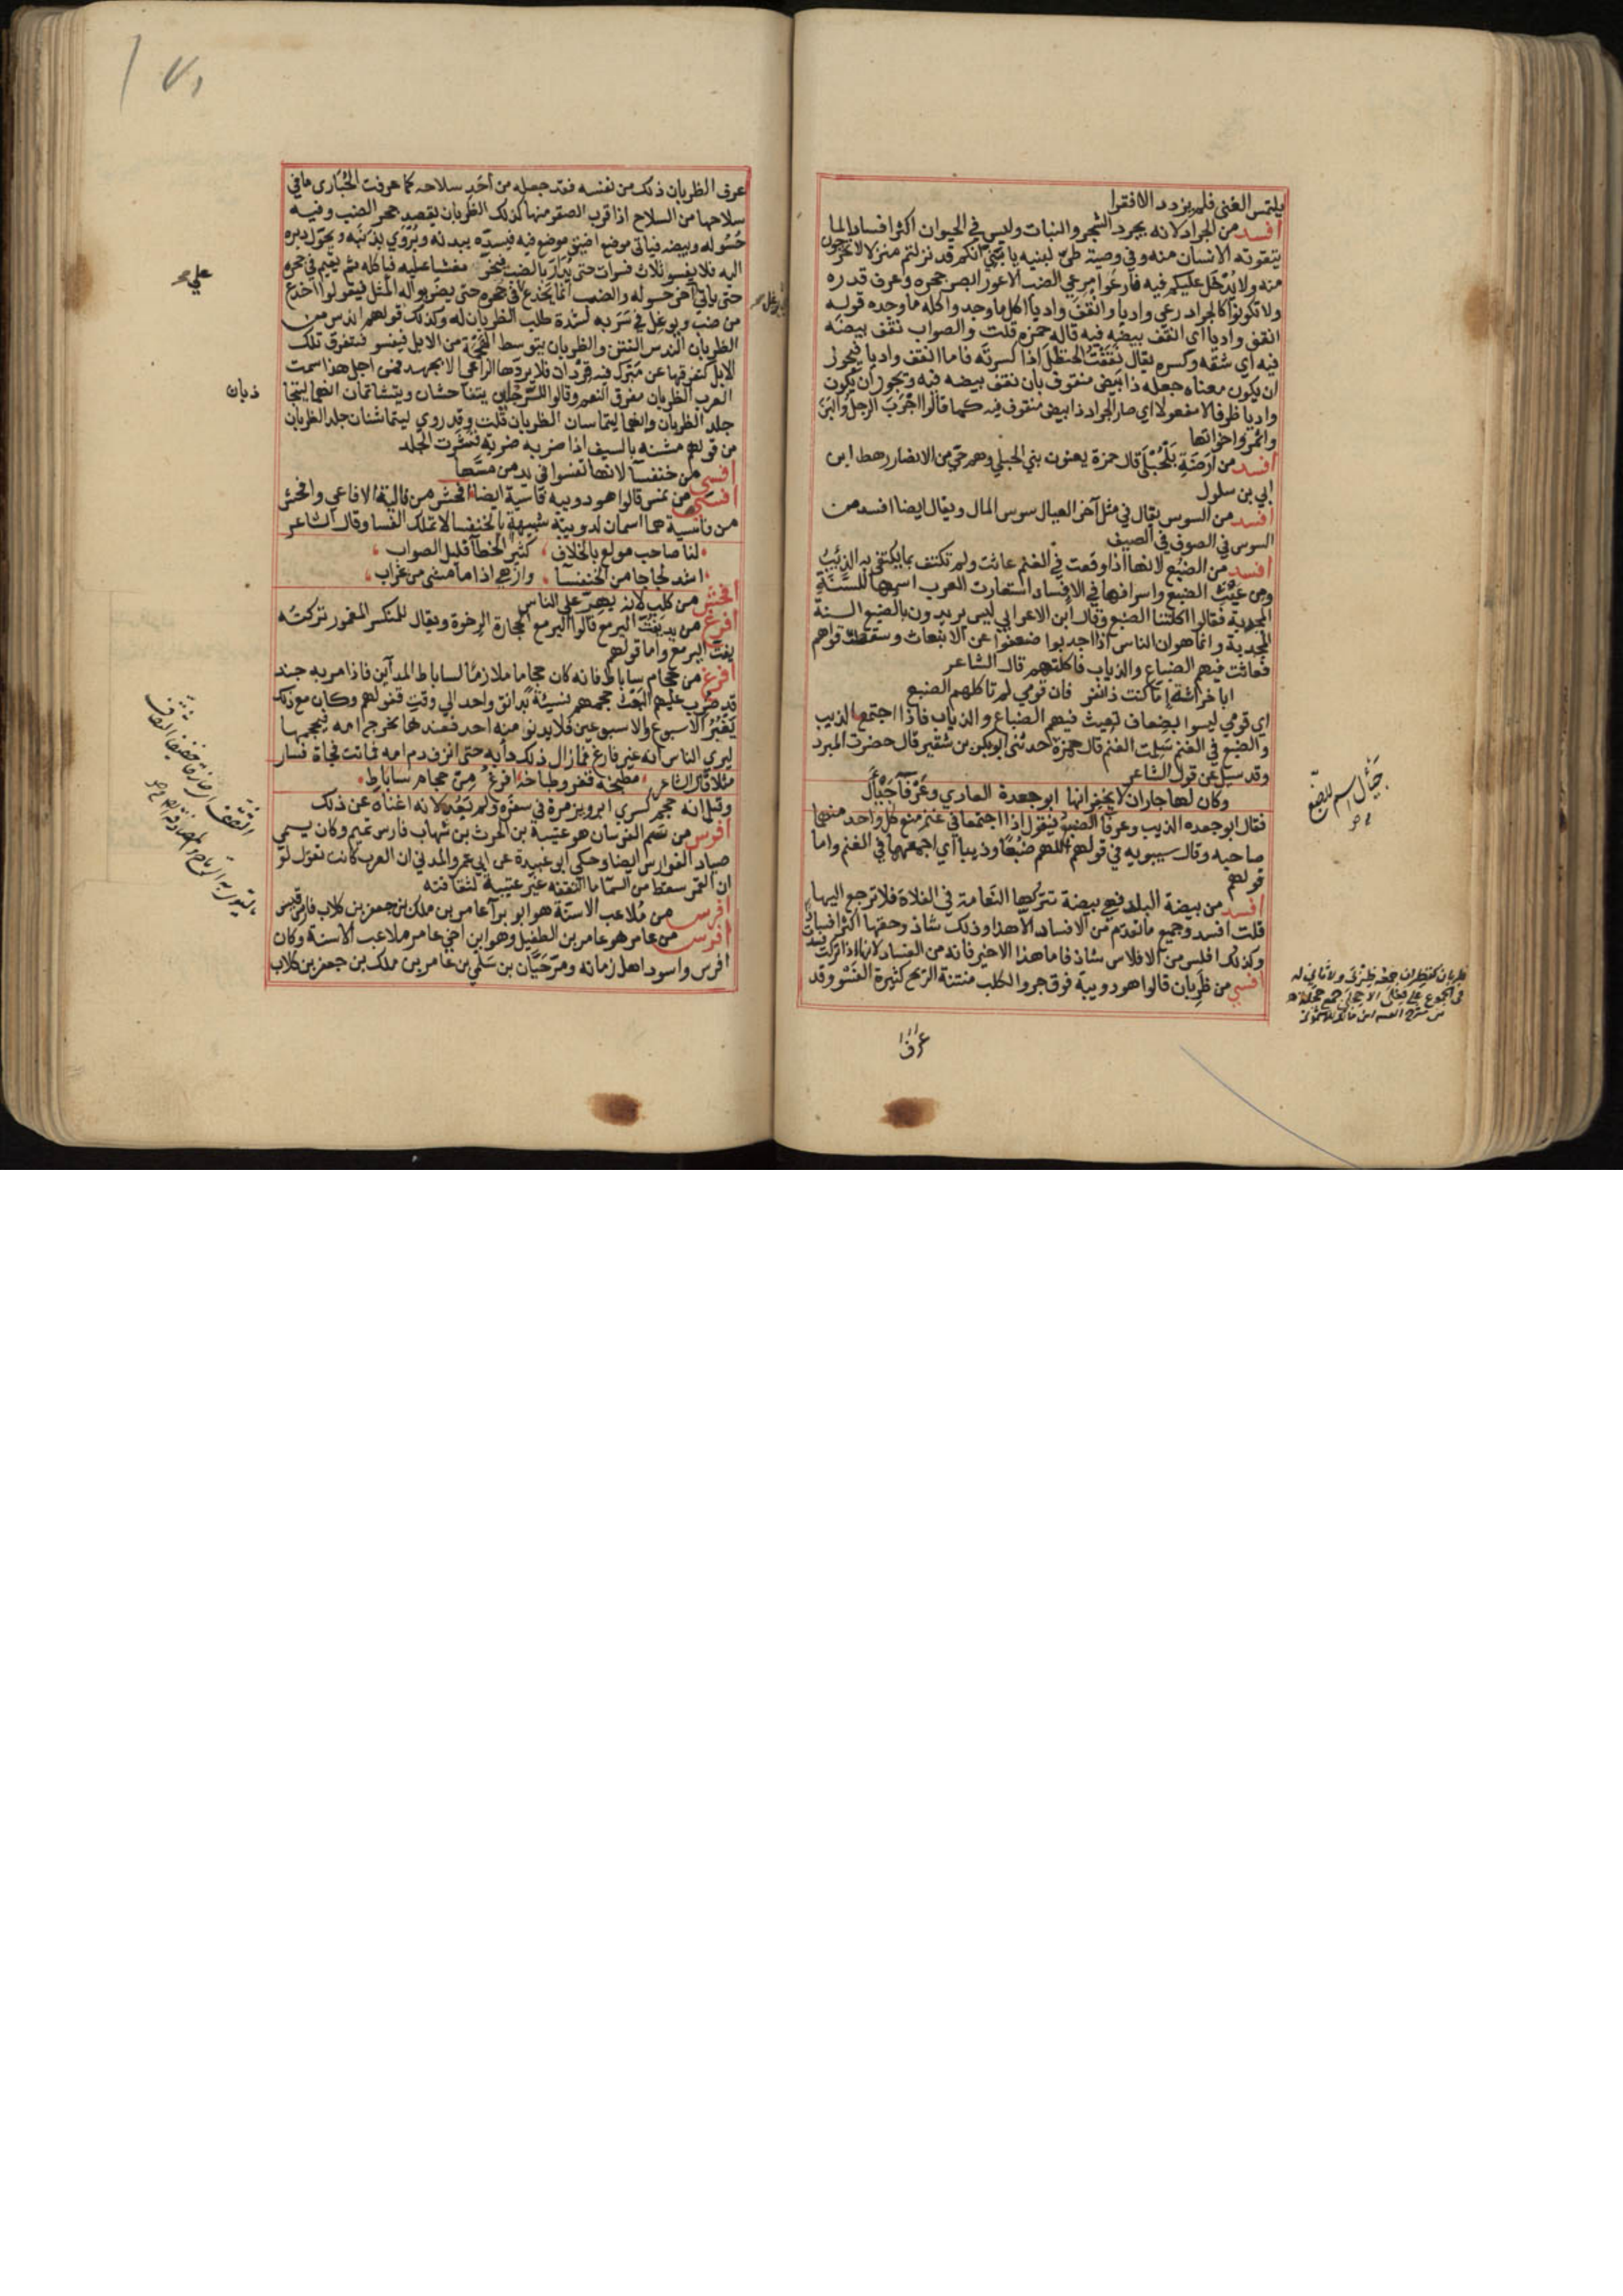 يلتمس الغنى فلم يزدد الا فقرا
افسد من الجراد لانه يجرد الشجر والنبات وليس في الحيوان اكثر افسادا لما
يتقوته الانسان منه وفي وصية طيّ لبنيه يا بنيّ انكم قد نزلتم منزلا لا تخرجون
منه ولا يُدْخَل عليكم فيه فارعوا مرعى الضب الاعور ابصر جحره وعرف قدره
ولا تكونوا كالجراد رعى واديا وانقف واديا اكل ما وجد واكله ما وجده قوله
انقف واديا اى انقف بيضه فيه قاله حمزه قلت والصواب نقف بيضه
فيه اي شقه وكسره يقال نقفت الحنظل اذا كسرته فاما انقف واديا فيجوز
ان يكون معناه جعله ذا بيض منقوف بان نقف بيضه فيه ويجوز ان يكون
واديا ظرفا لا مفعولا اي صار الجراد ذا بيض منقوف فيه كما قالوا اجرب الرجل والبن
واثمر واخواتها
افسد من ارضة بلحبلى قال حمزة يعنون بني الحبلي وهم حي من الانصار رهط ابن
ابي بن سلول
افسد من السوس يقال في مثل آخر العيال سوس المال ويقال ايضا افسد من
السوس في الصوف في الصيف
افسد من الضبع لانها اذا وقعت في الغنم عاثت ولم تكتف بما يكتفي به الذيب
ومن عيث الضبع واسرافها في الافساد استعارت العرب اسمها للسنة
المجدبة فقالوا اكلتنا الضبع وقال ابن الاعرابي ليس يريدون بالضبع السنة
المجدبة وانما هو ان الناس اذا اجدبوا ضعفوا عن الانبعاث وسقطت قواهم
فعاثت فيهم الضباع والذياب فاكلتهم قال الشاعر
ابا خراشة اما كنت ذا نفر فان قومي لم تاكلهم الضبع
اي قومي ليسوا بضعاف تعيث فيهم الضباع والذياب فاذا اجتمع الذيب
والضبع في الغنم سلمت الغنم قال حمزة حدثني ابو بكر بن شقير قال حضرت المبرد
وقد سيل عن قول الشاعر
وكان لها جاران لا يخفرانها ابو جعدة العادي وعرفا جيأل
فقال ابو جعده الذيب وعرفا الضبع فيقول اذا اجتمعا في غنم منع كل واحد منهما
صاحبه وقال سيبويه في قولهم اللهم ضبعا وذيبا اي اجمعهما في الغنم واما
قولهم
افسد من بيضة البلد فهي بيضة تتركها النعامة في الفلاة فلا ترجع اليها
قلت افسد وجميع ما تقدم من الافساد الا هذا وذلك شاذ وحقها اكثر افسادا
وكذلك افلس من الافلاس شاذ فاما هذا الاخير فانه من الفساد لانها اذا تركت فسدت
افسى من ظربان قالوا هو دويبة فوق جرو الكلب منتنة الريح كثيرة الفسو وقد
عرف
جيأل اسم للضبع
عرف الظربان ذلك من نفسه فقد جعله من احد سلاحه كما عرفت الحبارى ما في
سلاحها من السلاح اذا قرب الصقر منها كذلك الظربان يقصد جحر الضب وفيه
حسوله وبيضه فياتي موضع اضيق موضع فيه فيسده ببدنه ويروي بذنبه ويحول دبره
اليه فلا يفسو ثلاث فسوات حتى يدار بالضب فيخر مغشيا عليه فياكله ثم يقيم في جحره
حتى ياتي آخر حسوله والضب انما يخدع في جحره حتى يضربوا له المثل فيقولوا اخدع
من ضب ويوغل في سربه لشدة طلب الظربان له وكذلك قولهم اندس من
الظربان الندس النتن والظربان يتوسط الهجمة من الابل فيفسو فتتفرق تلك
الابل كتفرقها عن مبرك فيه قردان فلا يردها الراعي الا بجهد فمن اجل هذا سمت
العرب الظربان مفرق النعم وقالوا للرجلين يتفاحشان ويتشاتمان انهما ليتجا
جلد الظربان وانهما ليتماسان الظربان قلت وقد روي ليتماشنان جلد الظربان
من قولهم مشنه بالسيف اذا ضربه ضربة قشرت الجلد
افسى من خنفسا لانها تفسوا في يد من مسها
افسى من نمس قالوا هو دويبه فاسية ايضا افحش من فالية الافاعي وافحش
من فاسية هما اسمان لدويبة شبيهة بالخنفسا لا تملك الفسا وقال الشاعر
لنا صاحب مولع بالخلاف كثير الخطا قليل الصواب
اشد لجاجا من الخنفسا وازهى اذا ما مشى من غراب
افحش من كلب لانه يهر على الناس
افرغ من يد تفت اليرمع قالوا اليرمع الحجارة الرخوة ويقال للمنكسر المغمور تركته
يفت اليرمع واما قولهم
افرغ من حجام ساباط فانه كان حجاما ملازما لساباط المداين فاذا مر به جند
قد ضرب عليهم البعث حجمهم نسيئة بدانق واحد الى وقت قفولهم وكان مع ذلك
يغبر الاسبوع والاسبوعين فلا يدنوا منه احد فعندها يخرج امه فيحجمها
ليري الناس انه غير فارغ فما زال ذلك دابه حتى انزف دم امه فماتت فجاة فسار
مثلا قال الشاعر مطبخه قفر وطباخه افرغ من حجام ساباط
وقيل انه حجم كسري ابرويز مرة في سفره ولم يعد لانه اغناه عن ذلك
افرس من سم الفرسان هو عتيبة بن الحرث بن شهاب فارس تميم وكان يسمي
صياد الفوارس ايضا وحكى ابو عبيدة عن ابي عمرو المدني ان العرب كانت تقول لو
ان القمر سقط من السما ما التقفه غير عتيبة لثقافته
افرس من ملاعب الاسنة هو ابو برا عامر بن ملك بن جعفر بن كلاب فارس قيس
افرس من عامر هو عامر بن الطفيل وهو ابن اخي عامر ملاعب الاسنة وكان
افرس واسود اهل زمانه ومر حيان بن سلمي بن عامر بن ملك بن جعفر بن كلاب
ذبان